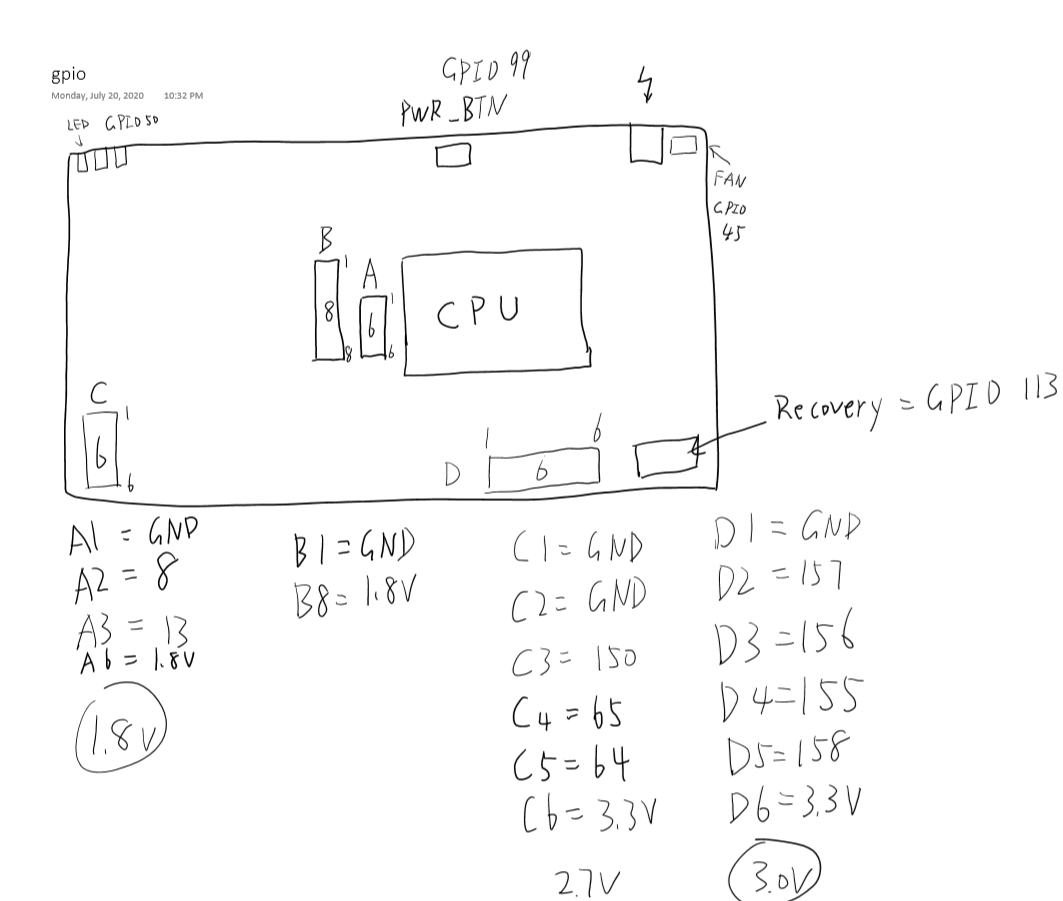 gpio
Monday, July 20, 2020 10:32 PM
LED GPIO 50
GPIO 99
PWR_BTN
FAN
GPIO
45
B
1
8
8
A
1
6
6
CPU
C
1
6
6
D
1
6
6
Recovery = GPIO 113
A1 = GND
A2 = 8
A3 = 13
A6 = 1.8V
1.8V
B1 = GND
B8 = 1.8V
C1 = GND
C2 = GND
C3 = 150
C4 = 65
C5 = 64
C6 = 3.3V
2.7V
D1 = GND
D2 = 157
D3 = 156
D4 = 155
D5 = 158
D6 = 3.3V
3.0V